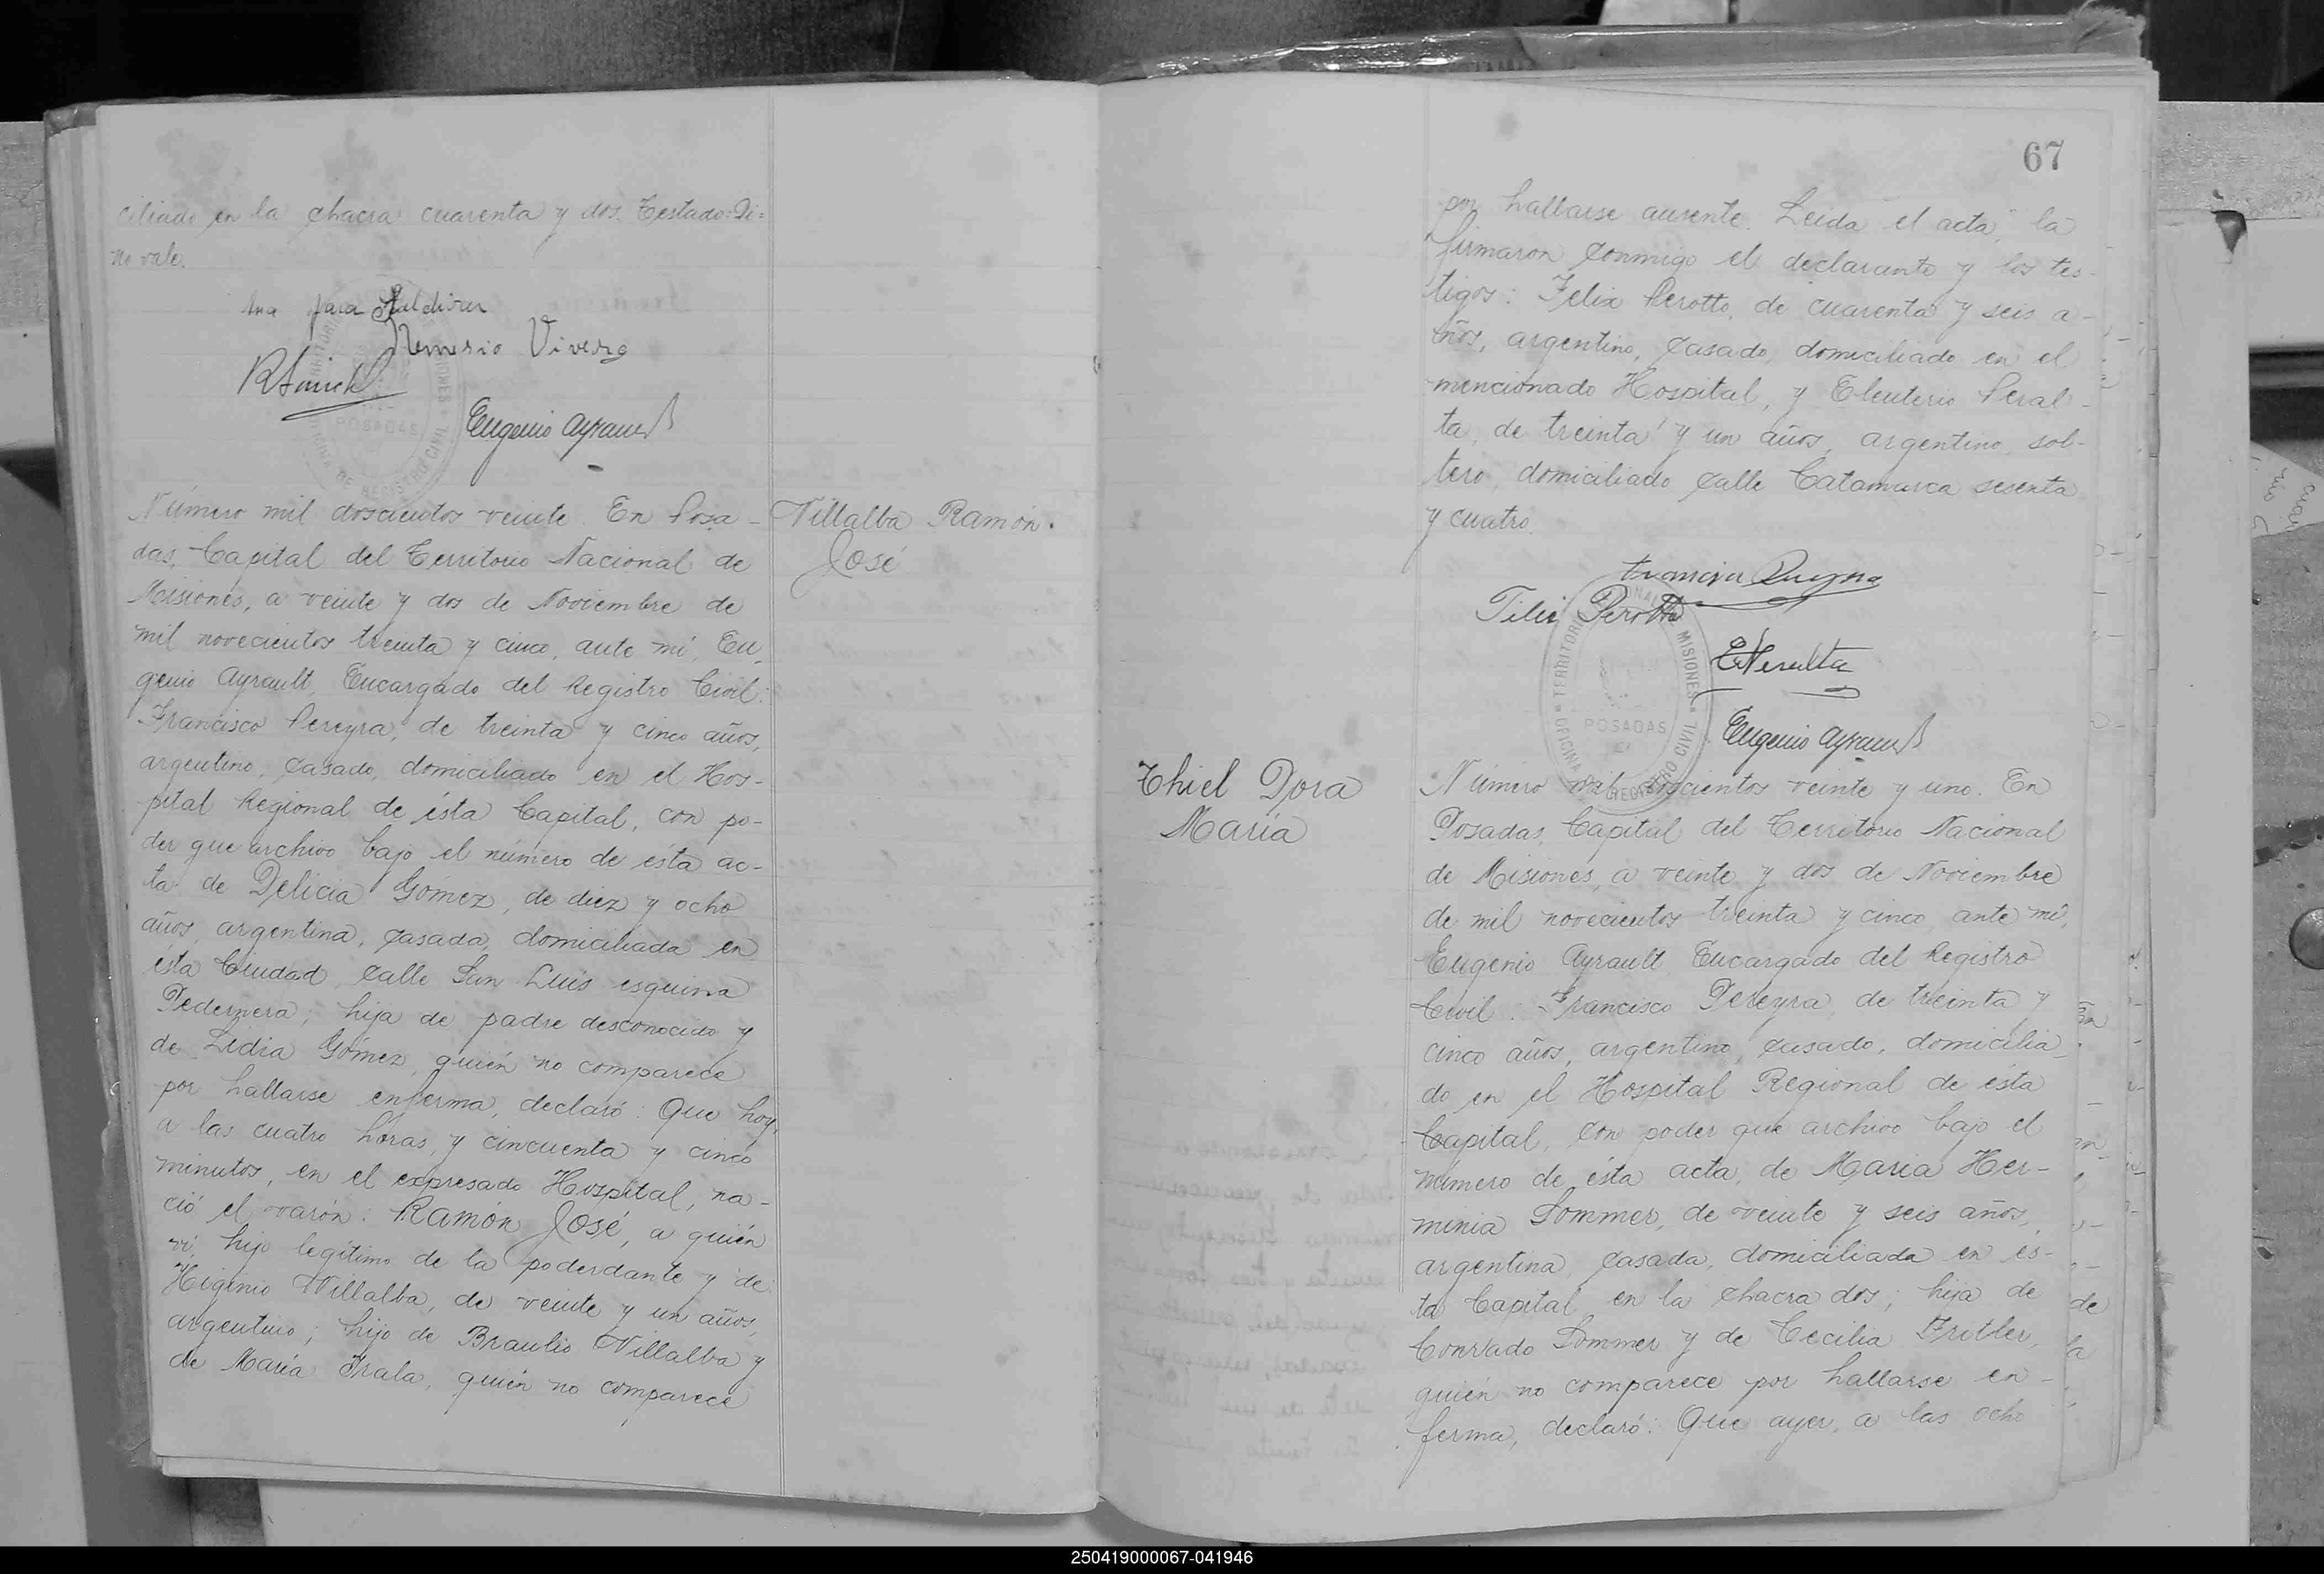 ciliado en la chacra cuarenta y dos. Testado: Di=
no vale.
Ana Jara Saldivar
Nemesio Vivero
Eugenio Ayrault
Número mil doscientos veinte. En Posa-
das, Capital del Territorio Nacional de
Misiones, a veinte y dos de Noviembre de
mil novecientos treinta y cinco, ante mí, Eu-
genio Ayrault, Encargado del Registro Civil:
Francisco Pereyra, de treinta y cinco años,
argentino, casado, domiciliado en el Hos-
pital Regional de ésta Capital, con po-
der que archivo bajo el número de ésta ac-
ta de Delicia Gómez, de diez y ocho
años, argentina, casada, domiciliada en
ésta Ciudad calle San Luis esquina
Pedernera; hija de padre desconocido y
de Lidia Gómez, quién no comparece
por hallarse enferma, declaró: Que hoy,
a las cuatro horas, y cincuenta y cinco
minutos, en el expresado Hospital, na-
ció el varón: Ramón José, a quién
ví, hijo legítimo de la poderdante y de
Higinio Villalba, de veinte y un años,
argentino; hijo de Braulio Villalba y
de María Irala, quién no comparece
Villalba Ramón.
José
67
por hallarse ausente. Leida el acta, la
firmaron conmigo el declarante y los tes-
tigos: Felix Perotto, de cuarenta y seis a-
ños, argentino, casado, domiciliado en el
mencionado Hospital, y Eleuterio Peral-
ta, de treinta y un años, argentino, sol-
tero, domiciliado calle Catamarca sesenta
y cuatro.
Felix Perotto
E. Peralta
TERRITORIO NACIONAL DE MISIONES
POSADAS
OFICINA DE REGISTRO CIVIL
Eugenio Ayrault
Thiel Dora
María
Número mil doscientos veinte y uno. En
Posadas, Capital del Territorio Nacional
de Misiones, a veinte y dos de Noviembre
de mil novecientos treinta y cinco, ante mí,
Eugenio Ayrault Encargado del Registro
Civil: Francisco Pereyra, de treinta y
cinco años, argentino, casado, domicilia-
do en el Hospital Regional de ésta
Capital, con poder que archivo bajo el
número de ésta acta, de María Her-
minia Sommer, de veinte y seis años,
argentina, casada, domiciliada en és-
ta Capital en la chacra dos; hija de
Conrado Sommer y de Cecilia Fritler,
quién no comparece por hallarse en-
ferma, declaró: Que ayer, a las ocho
250419000067-041946